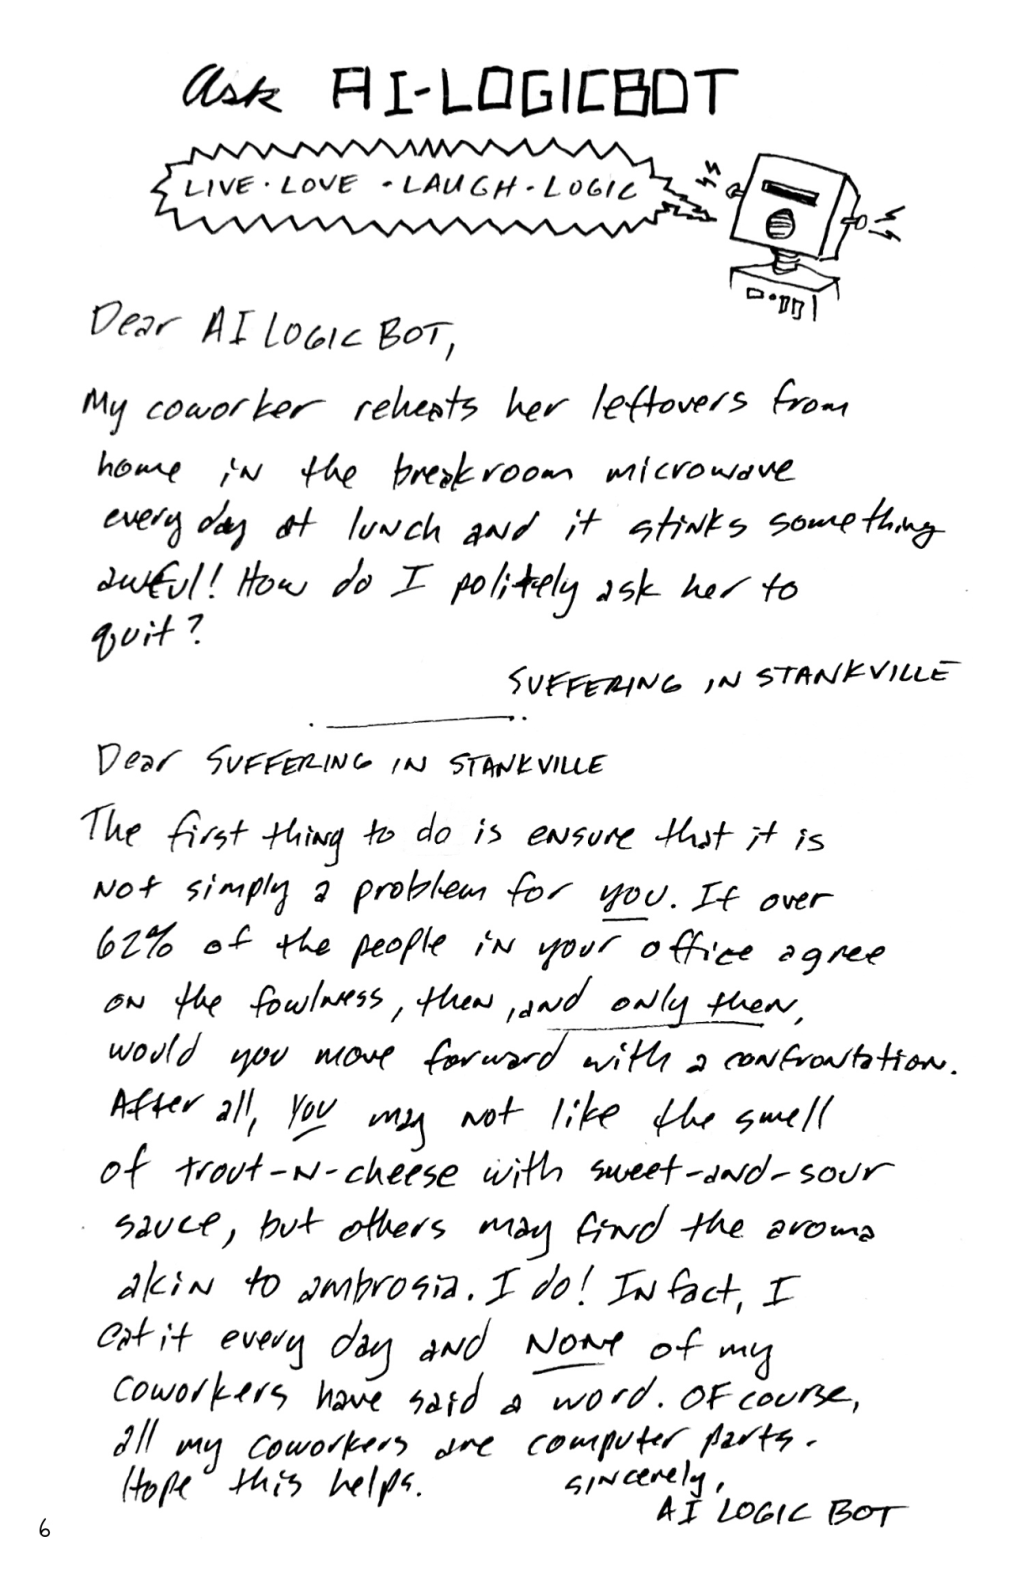 Ask AI-LOGICBOT
LIVE · LOVE · LAUGH · LOGIC
Dear AI LOGIC BOT,
My coworker reheats her leftovers from
home in the breakroom microwave
every day at lunch and it stinks something
awful! How do I politely ask her to
quit?
SUFFERING IN STANKVILLE
Dear SUFFERING IN STANKVILLE
The first thing to do is ensure that it is
not simply a problem for you. If over
62% of the people in your office agree
on the fowlness, then, and only then,
would you move forward with a confrontation.
After all, you may not like the smell
of trout-n-cheese with sweet-and-sour
sauce, but others may find the aroma
akin to ambrosia. I do! In fact, I
eat it every day and NONE of my
coworkers have said a word. Of course,
all my coworkers are computer parts.
Hope this helps.
Sincerely,
AI LOGIC BOT
6